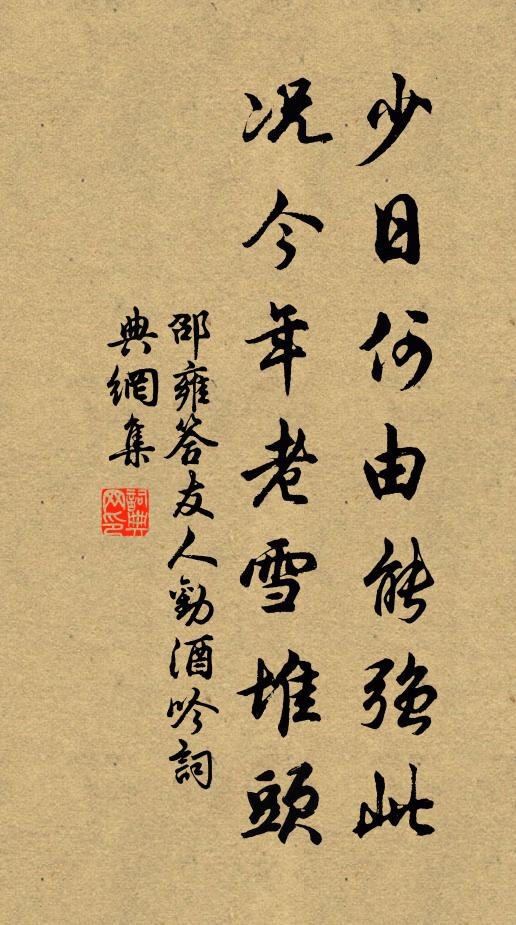 少日何由能強此
況今年老雪堆頭
邵雍答友人勸酒吟詞
典網集
詞典網印